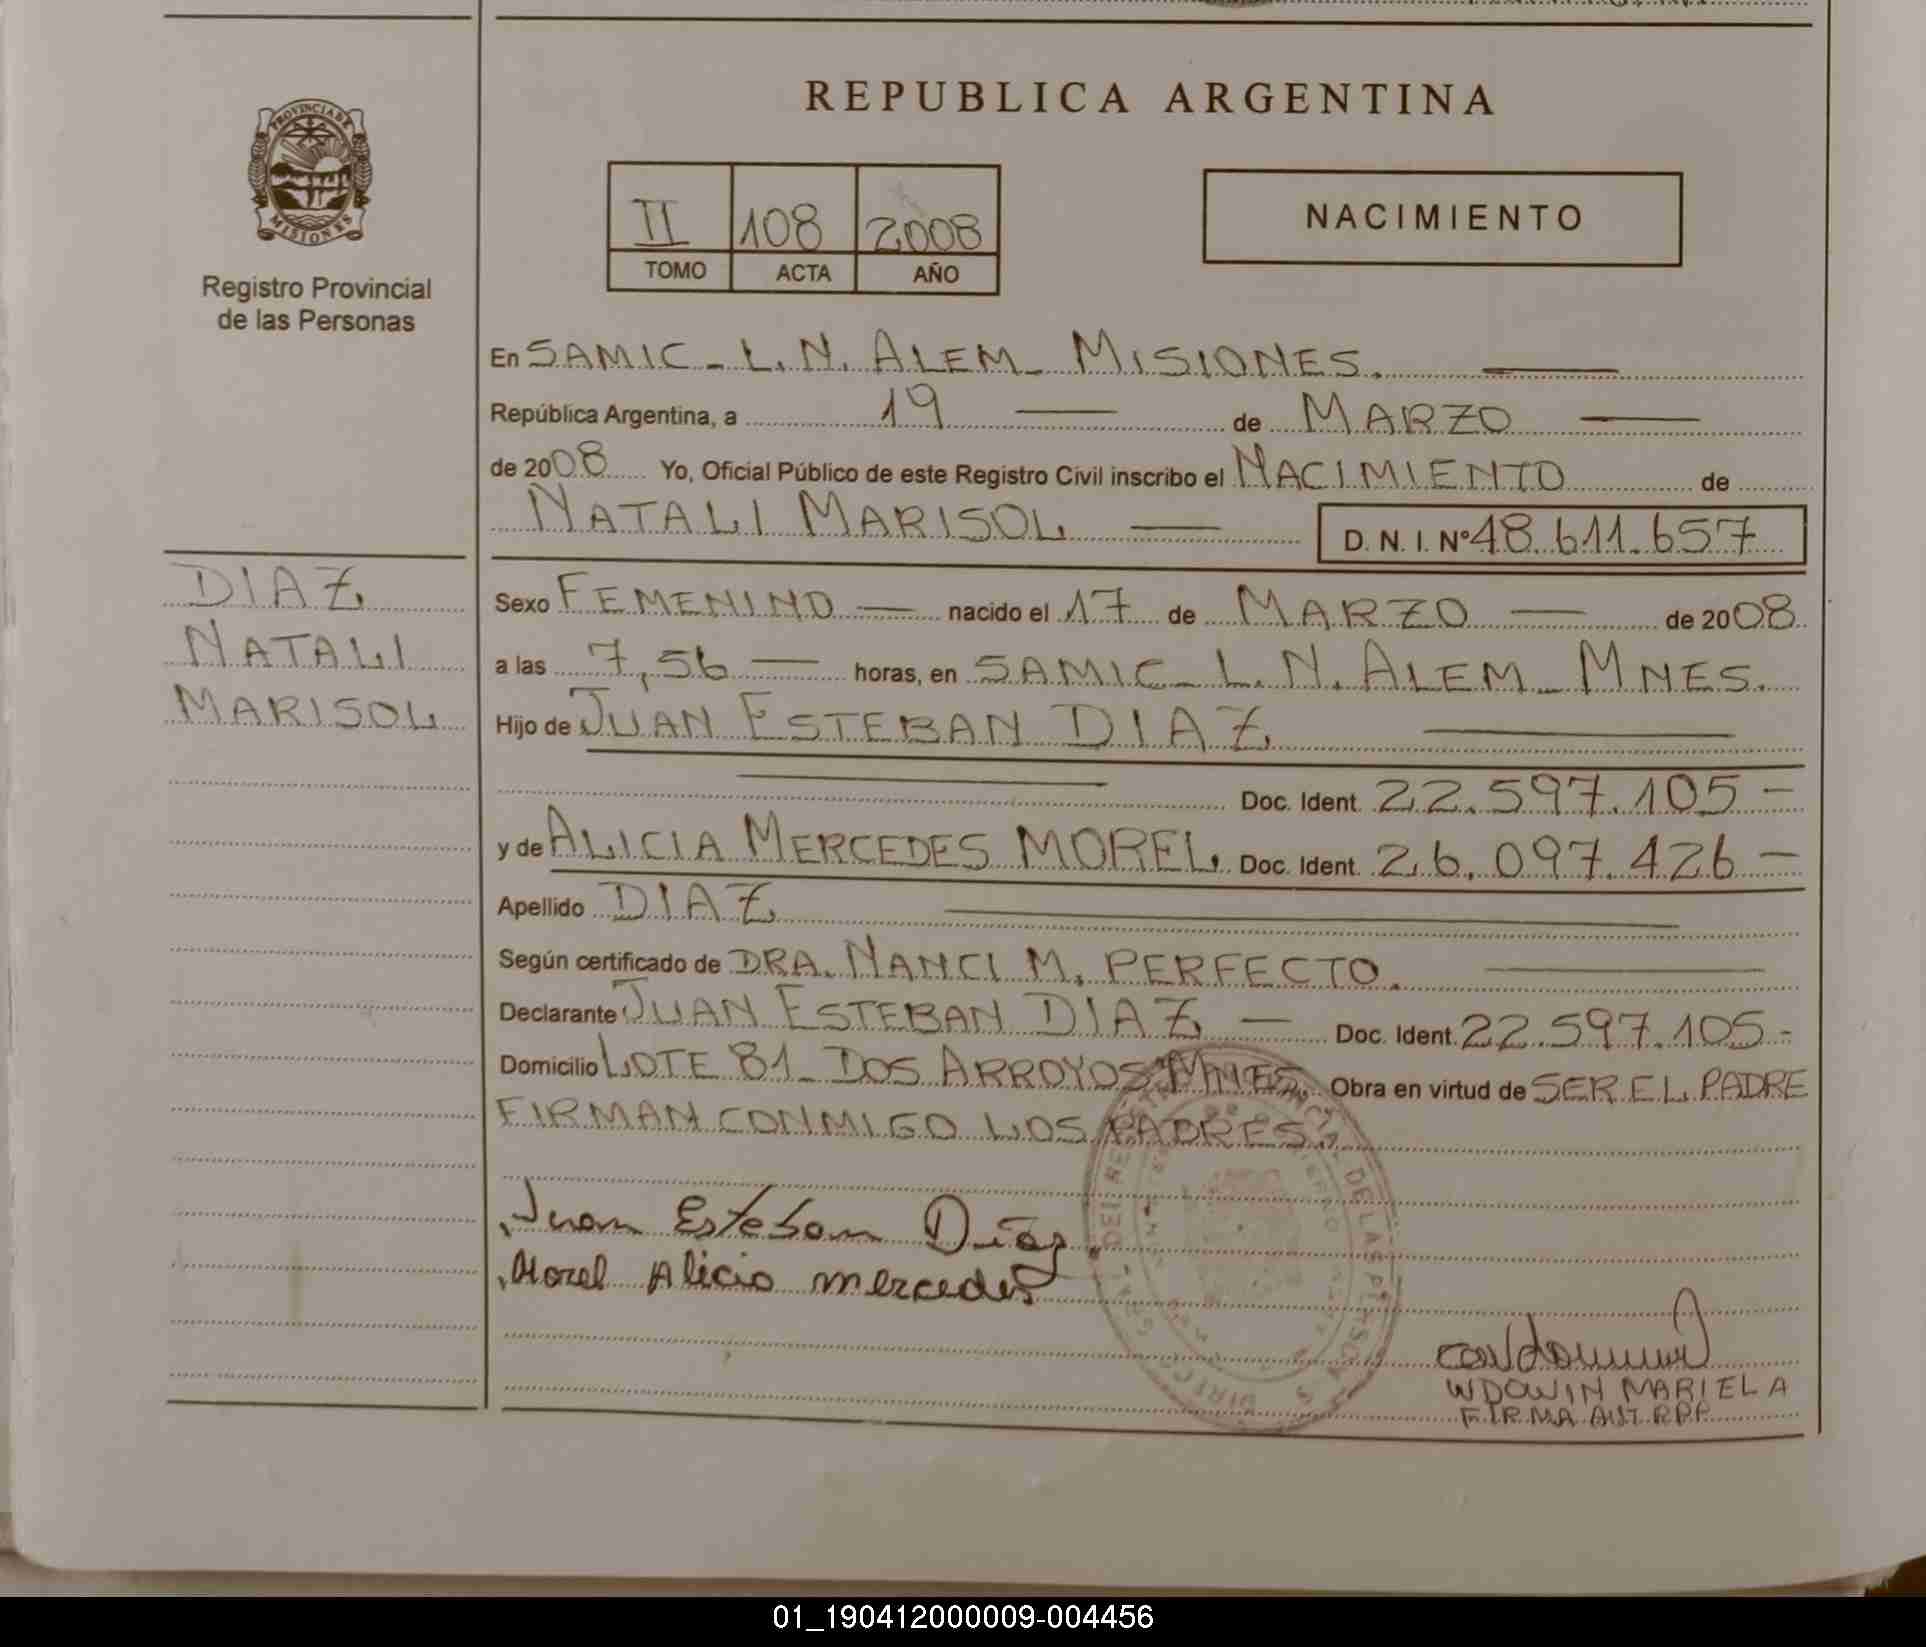 REPUBLICA ARGENTINA
PROVINCIA DE
MISIONES
Registro Provincial
de las Personas
II 108 2008
TOMO ACTA AÑO
NACIMIENTO
En SAMIC - L. N. ALEM - MISIONES.
República Argentina, a 19 de MARZO
de 2008 Yo, Oficial Público de este Registro Civil inscribo el NACIMIENTO de
NATALI MARISOL D. N. I. Nº 48.611.657
DIAZ
NATALI
MARISOL
Sexo FEMENINO nacido el 17 de MARZO de 2008
a las 7,56 horas, en SAMIC - L. N. ALEM - MNES.
Hijo de JUAN ESTEBAN DIAZ
Doc. Ident. 22.597.105 -
y de ALICIA MERCEDES MOREL. Doc. Ident. 26.097.426 -
Apellido DIAZ
Según certificado de DRA. NANCI M. PERFECTO.
Declarante JUAN ESTEBAN DIAZ - Doc. Ident. 22.597.105 -
Domicilio LOTE 81 - DOS ARROYOS MNES. Obra en virtud de SER EL PADRE
FIRMAN CONMIGO LOS PADRES.
Juan Esteban Díaz
Morel Alicia mercedes
DE LAS PERSONAS
WDOWIN MARIELA
FIRMA AUT. RPP
01_190412000009-004456